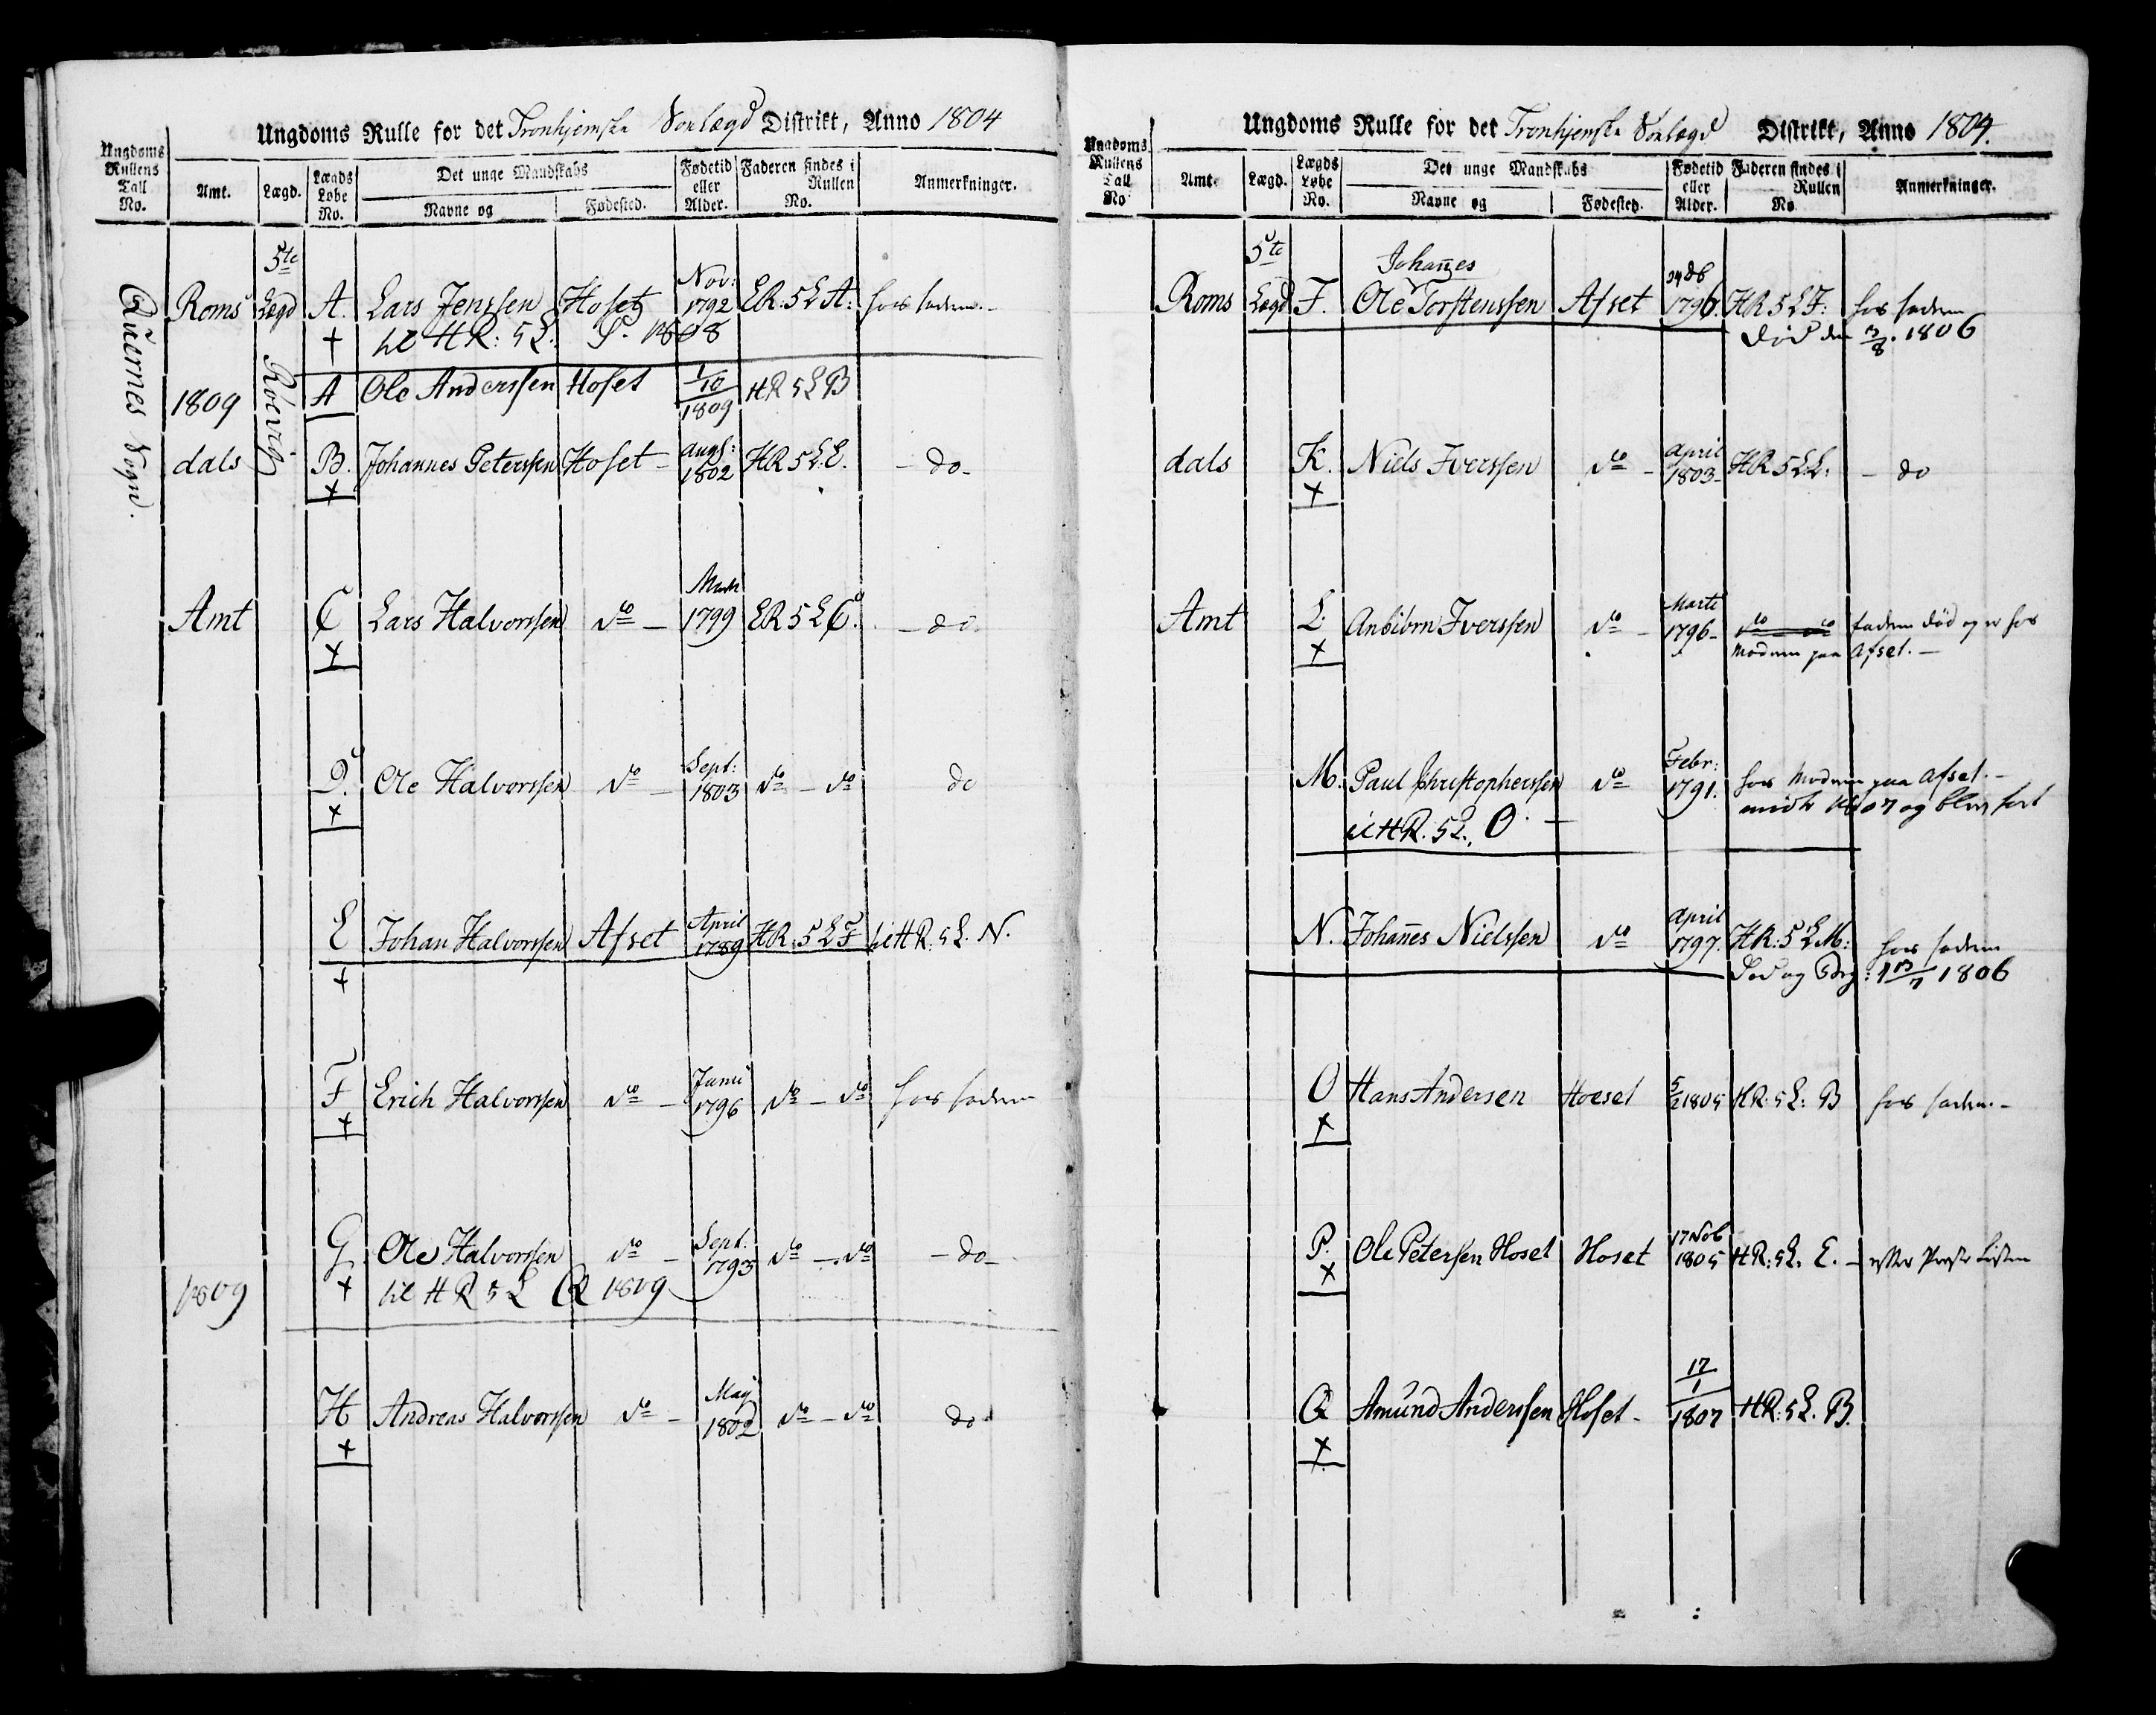 Ungdoms Rulle for det Tronhjemske Søelægd Distrikt, Anno 1804
Ungdoms Rullens Tall No.
Amt.
Lægd.
Lægds Løbe No.
Det unge Mandskabs
Navne og
Fødested.
Fødetid eller Alder.
Faderen findes i Rullen No.
Anmerkninger.
Quernes Sogn.
5te
Roms Lægd A. Lars Jenssen Hoset Nov: 1792 ER: 5 L A: hos faderen
Roevig
+ til HR: 5 L. P. 1808
1809 A Ole Anderssen Hoset 1/10 1809 HR 5 L B
dals B. Johannes Peterssen Hoset – Augs: 1802 HR 5 L. E. – do –
+
Amt C Lars Halvorssen do – Marti 1799 ER 5 L C. – do
+
D. Ole Halvorssen do – Sept: 1803 do – do do
+
E Johan Halvorssen Afset April 1789 HR: 5 L F til HR: 5 L. N.
+
F Erich Halvorssen do – Juni 1796 do – do hos faderen
+
G. Ole Halvorssen do – Sept: 1793 do – do – do –
1809 + til HR 5 L Q 1809
H Andreas Halvorssen do – May 1802 do – do do
+
Ungdoms Rulle for det Tronhjemske Søelægd Distrikt, Anno 1804.
Ungdoms Rullens Tall No
Amt.
Lægd.
Lægds Løbe No.
Det unge Mandskabs
Navne og
Fødested.
Fødetid eller Alder.
Faderen findes i Rullen No
Anmerkninger.
5te
Johannes
Roms Lægd J. Ole Torstenssen Afset 24 db 1796. HR 5 L F: hos faderen
død den 3/8. 1806
dals K. Niels Iverssen do – April 1803 – HR 5 L L: – do
+
Amt L. Anbiørn Iverssen do – Marti 1796 – do do faderen død og er hos
+ Moderen paa Afset. –
M. Paul Christopherssen do Febr: 1791. hos Moderen paa Afset. –
1807 og blev ført
til HR. 5 L. O. –
N. Johannes Nielssen do April 1797. HR: 5 L M: hos faderen
Død og 1806
O Hans Andersen Hoeset 5/2 1805 HR: 5 L: B hos faderen –
+
P. Ole Petersen Hoset Hoset 17 Nob 1805 HR: 5 L. E. – efter Præste Listen
+
Q Amund Anderssen Hoset – 17/1 1807 HR: 5 L. B.
+